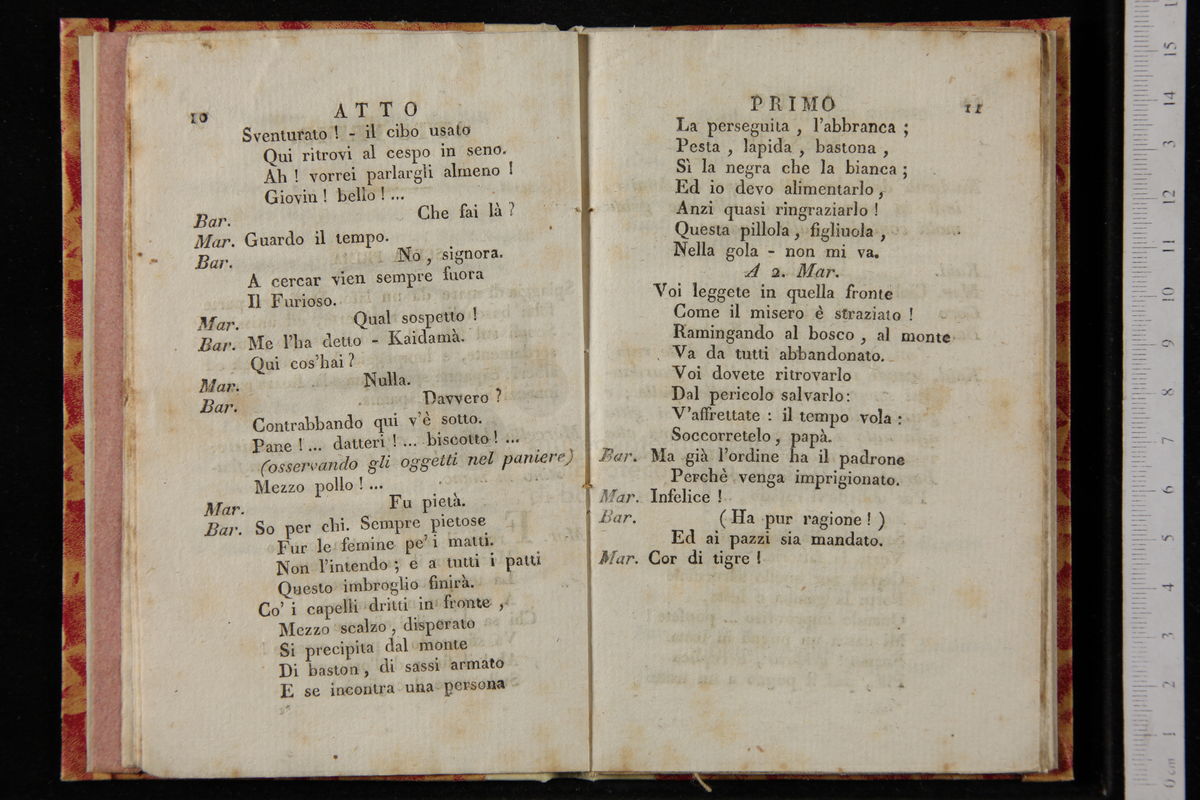 10
ATTO
Sventurato ! - il cibo usato
Qui ritrovi al cespo in seno.
Ah ! vorrei parlargli almeno !
Giovin ! bello ! ...
Bar. Che fai là ?
Mar. Guardo il tempo.
Bar. No , signora.
A cercar vien sempre fuora
Il Furioso.
Mar. Qual sospetto !
Bar. Me l'ha detto - Kaidamà.
Qui cos'hai ?
Mar. Nulla.
Bar. Davvero ?
Contrabbando qui v'è sotto.
Pane ! ... datteri ! ... biscotto ! ...
(osservando gli oggetti nel paniere)
Mezzo pollo ! ...
Mar. Fu pietà.
Bar. So per chi. Sempre pietose
Fur le femine pe' i matti.
Non l'intendo ; e a tutti i patti
Questo imbroglio finirà.
Co' i capelli dritti in fronte ,
Mezzo scalzo , disperato
Si precipita dal monte
Di baston , di sassi armato
E se incontra una persona
PRIMO
11
La perseguita , l'abbranca ;
Pesta , lapida , bastona ,
Sì la negra che la bianca ;
Ed io devo alimentarlo ,
Anzi quasi ringraziarlo !
Questa pillola , figliuola ,
Nella gola - non mi va.
A 2. Mar.
Voi leggete in quella fronte
Come il misero è straziato !
Ramingando al bosco , al monte
Va da tutti abbandonato.
Voi dovete ritrovarlo
Dal pericolo salvarlo :
V'affrettate : il tempo vola :
Soccorretelo , papà.
Bar. Ma già l'ordine ha il padrone
Perchè venga imprigionato.
Mar. Infelice !
Bar. ( Ha pur ragione ! )
Ed ai pazzi sia mandato.
Mar. Cor di tigre !
0 cm 1 2 3 4 5 6 7 8 9 10 11 12 3 14 15